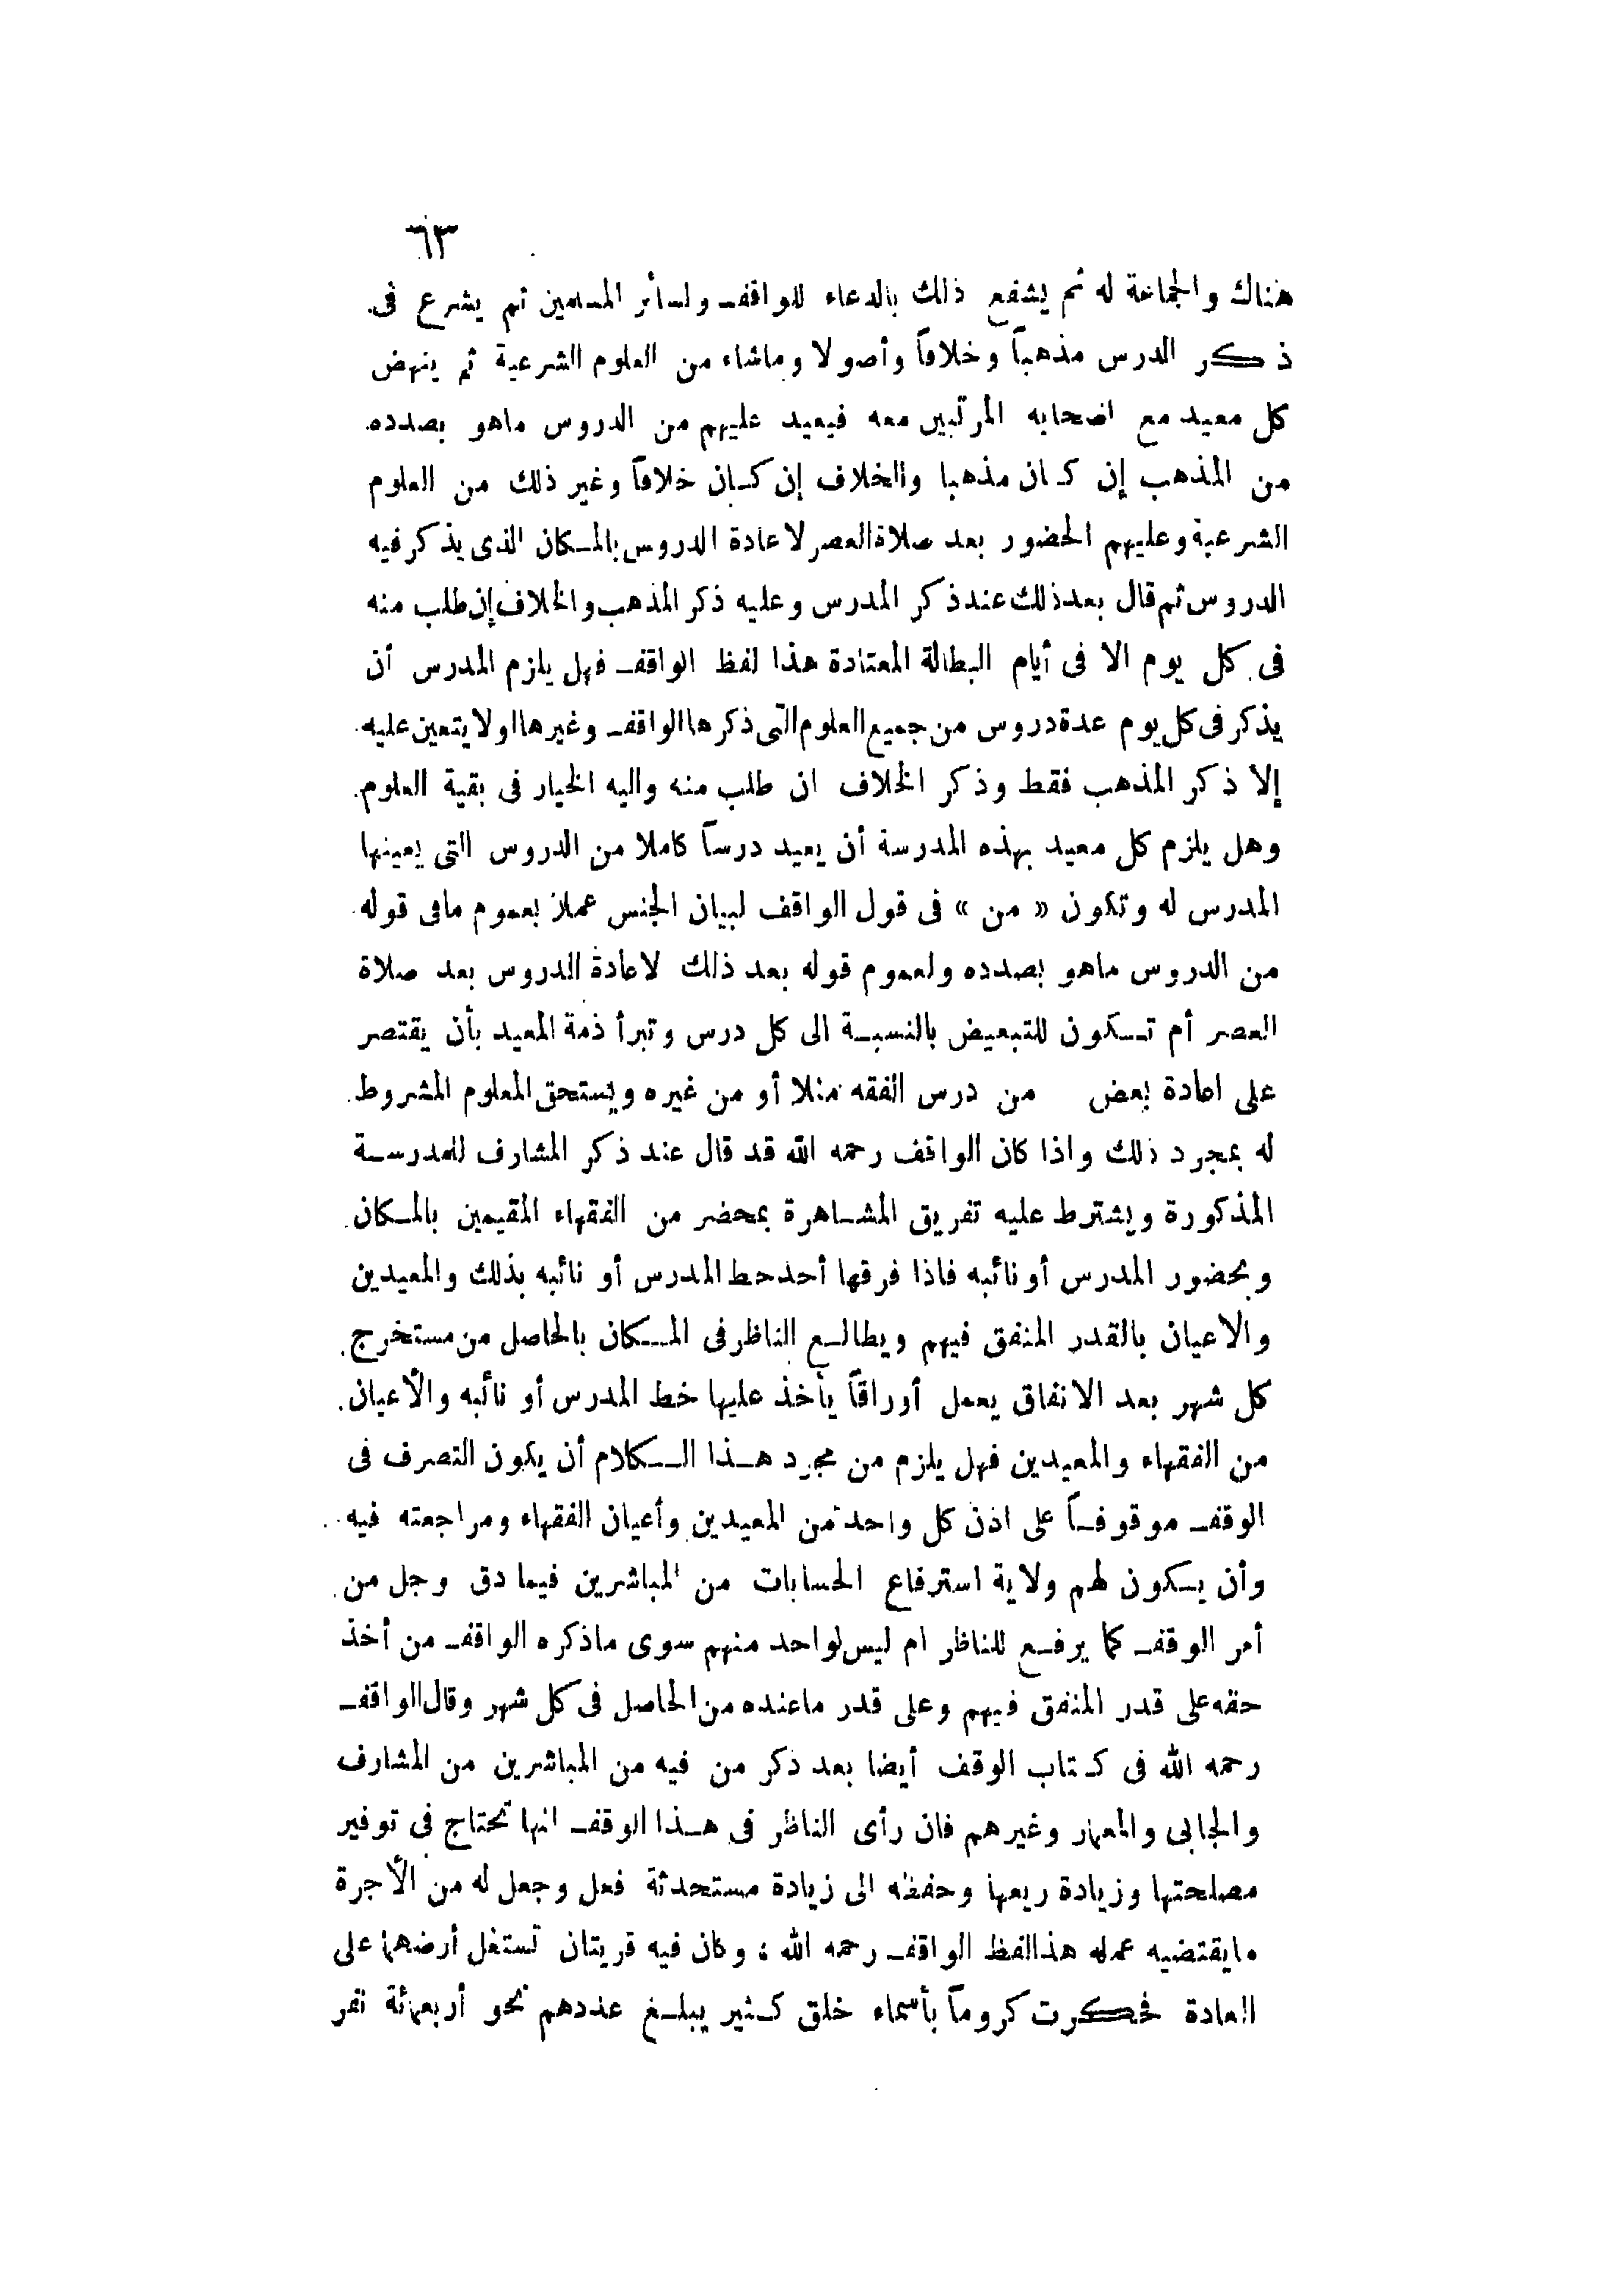 ٦٣
هناك والجماعة له ثم يشفع ذلك بالدعاء للواقف ولسائر المسلمين ثم يشرع فى
ذكر الدرس مذهباً وخلافاً وأصولا وماشاء من العلوم الشرعية ثم ينهض
كل معيد مع اصحابه المرتبين معه فيعيد عليهم من الدروس ماهو بصدده
من المذهب إن كان مذهبا والخلاف إن كان خلافاً وغير ذلك من العلوم
الشرعية وعليهم الحضور بعد صلاة العصر لاعادة الدروس بالمكان الذى يذكر فيه
الدروس ثم قال بعد ذلك عند ذكر المدرس وعليه ذكر المذهب والخلاف إن طلب منه
فى كل يوم الا فى أيام البطالة المعتادة هذا لفظ الواقف فهل يلزم المدرس أن
يذكر فى كل يوم عدة دروس من جميع العلوم التى ذكرها الواقف وغيرها اولا يتعين عليه
إلا ذكر المذهب فقط وذكر الخلاف ان طلب منه واليه الخيار فى بقية العلوم
وهل يلزم كل معيد بهذه المدرسة أن يعيد درساً كاملا من الدروس التى يعينها
المدرس له وتكون « من » فى قول الواقف لبيان الجنس عملا بعموم مافى قوله
من الدروس ماهو بصدده ولعموم قوله بعد ذلك لاعادة الدروس بعد صلاة
العصر أم تكون للتبعيض بالنسبة الى كل درس وتبرأ ذمة المعيد بأن يقتصر
على اعادة بعض من درس الفقه مثلا أو من غيره ويستحق المعلوم المشروط
له بمجرد ذلك واذا كان الواقف رحمه الله قد قال عند ذكر المشارف للمدرسة
المذكورة ويشترط عليه تفريق المشاهرة بمحضر من الفقهاء المقيمين بالمكان
وبحضور المدرس أو نائبه فاذا فرقها أحد حط المدرس أو نائبه بذلك والمعيدين
والاعيان بالقدر المنفق فيهم ويطالع الناظر فى المكان بالحاصل من مستخرج
كل شهر بعد الانفاق يعمل أوراقاً يأخذ عليها خط المدرس أو نائبه والأعيان
من الفقهاء والمعيدين فهل يلزم من مجرد هذا الكلام أن يكون التصرف فى
الوقف موقوفاً على اذن كل واحد من المعيدين وأعيان الفقهاء ومراجعته فيه
وأن يكون لهم ولاية استرفاع الحسابات من المباشرين فيما دق وجل من
أمر الوقف كما يرفع للناظر ام ليس لواحد منهم سوى ماذكره الواقف من أخذ
حقه على قدر المنفق فيهم وعلى قدر ماعنده من الحاصل فى كل شهر وقال الواقف
رحمه الله فى كتاب الوقف أيضا بعد ذكر من فيه من المباشرين من المشارف
والجابى والمعمار وغيرهم فان رأى الناظر فى هذا الوقف انها تحتاج فى توفير
مصلحتها وزيادة ريعها وحفظه الى زيادة مستحدثة فعل وجعل له من الأجرة
مايقتضيه عمله هذا لفظ الواقف رحمه الله ؛ وكان فيه قريتان تستغل أرضهما على
العادة فحكرت كروماً بأسماء خلق كثير يبلغ عددهم نحو أربعمائة نفر